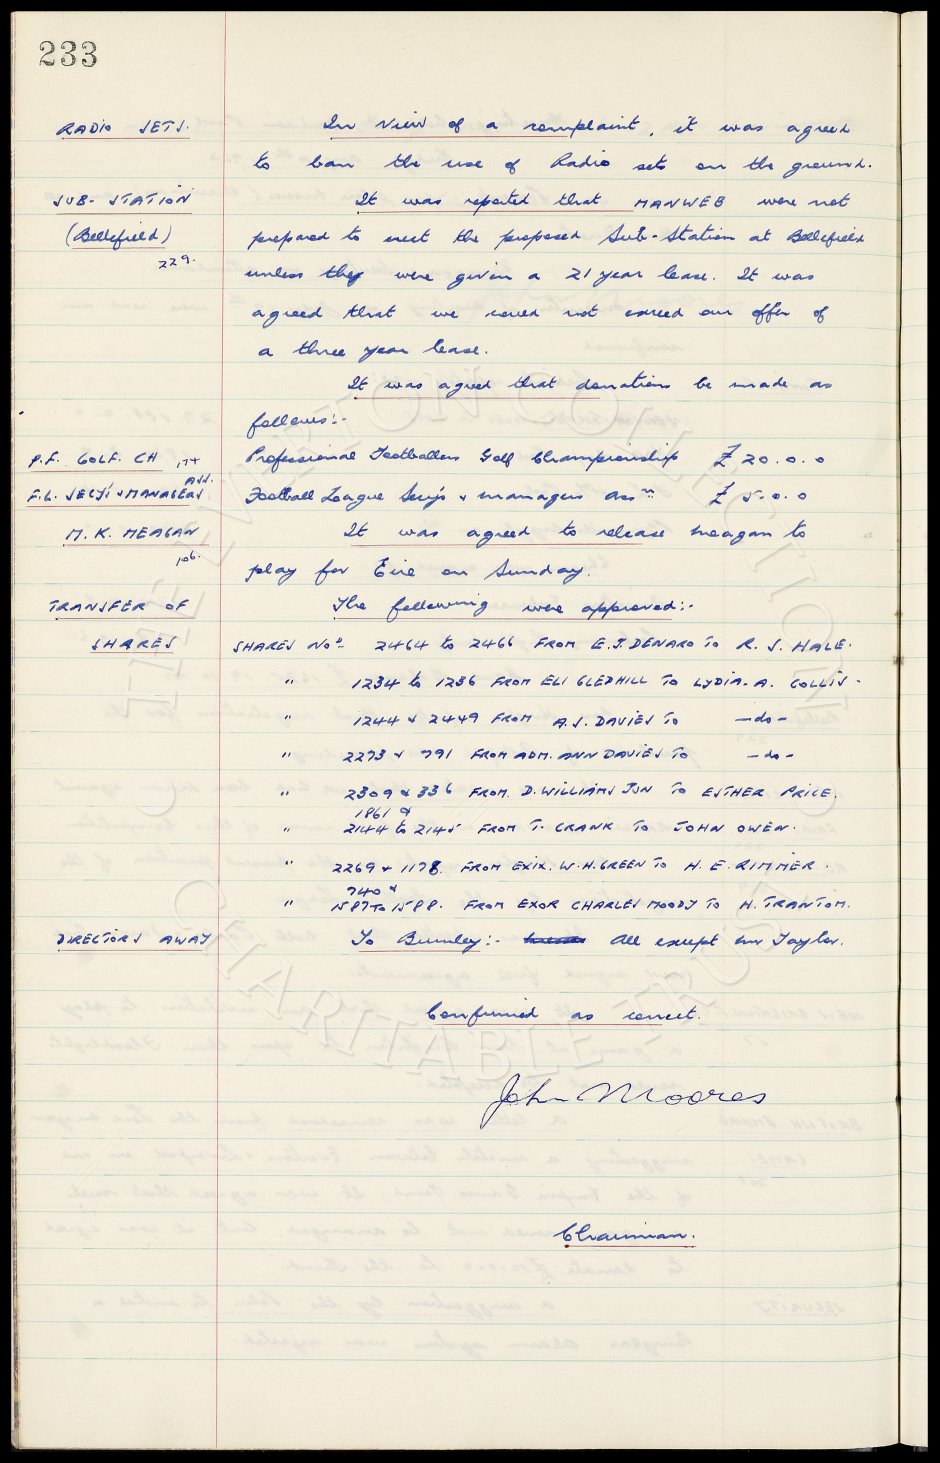 233
RADIO SETS. In view of a complaint, it was agreed
to ban the use of Radio sets on the ground.
SUB-STATION It was reported that MANWEB were not
(Bellefield) prepared to erect the proposed Sub-Station at Bellefield
229.
unless they were given a 21 year lease. It was
agreed that we could not exceed our offer of
a three year lease.
It was agreed that donations be made as
follows:-
P.F. GOLF. CH 174 Professional Footballers Golf Championship £20.0.0
F.L. SECYS & MANAGERS ASS. Football League Secys & managers Assn £5.0.0
M. K. MEAGAN It was agreed to release Meagan to
106.
play for Eire on Sunday.
TRANSFER OF The following were approved:-
SHARES SHARES Nos 2464 to 2466 FROM E.J. DENARO TO R. S. HALE.
" 1234 to 1236 FROM ELI GLEDHILL TO LYDIA. A. COLLIS.
" 1244 & 2449 FROM A.S. DAVIES TO -do-
" 2273 & 791 FROM ADM. ANN DAVIES TO -do-
" 2309 & 336 FROM. D. WILLIAMS JUN TO ESTHER PRICE.
1861 &
" 2144 to 2145 FROM T. CRANK TO JOHN OWEN.
" 2269 & 1178. FROM EXIX. W.H. GREEN TO H. E. RIMMER.
740 &
" 1587 TO 1588. FROM EXOR CHARLES MOODY TO H. TRANTOM.
DIRECTORS AWAY To Burnley:- All except Mr Taylor.
Confirmed as correct.
John Moores
Chairman.
THE EVERTON COLLECTION
CHARITABLE TRUST